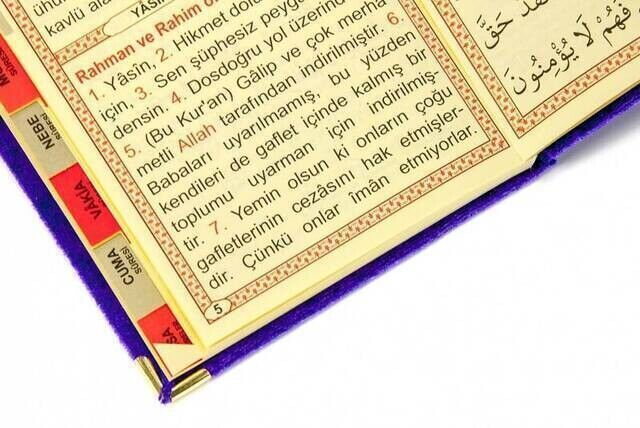 ühud
kavlü ala
YÂSÎN
Rahman ve Rahim ol
1. Yâsîn, 2. Hikmet dolu
için, 3. Sen şüphesiz peyge
densin. 4. Dosdoğru yol üzerind
5. (Bu Kur'an) Gâlip ve çok merha
metli Allah tarafından indirilmiştir. 6.
Babaları uyarılmamış, bu yüzden
kendileri de gaflet içinde kalmış bir
toplumu uyarman için indirilmiş-
tir. 7. Yemin olsun ki onların çoğu
gafletlerinin cezâsını hak etmişler-
dir. Çünkü onlar îmân etmiyorlar.
5
SÛRESİ
NEBE
SÛRESİ
VAKIA
CUMA
SÛRESİ
حَقَّ
فَهُمْ لَا يُؤْمِنُونَ